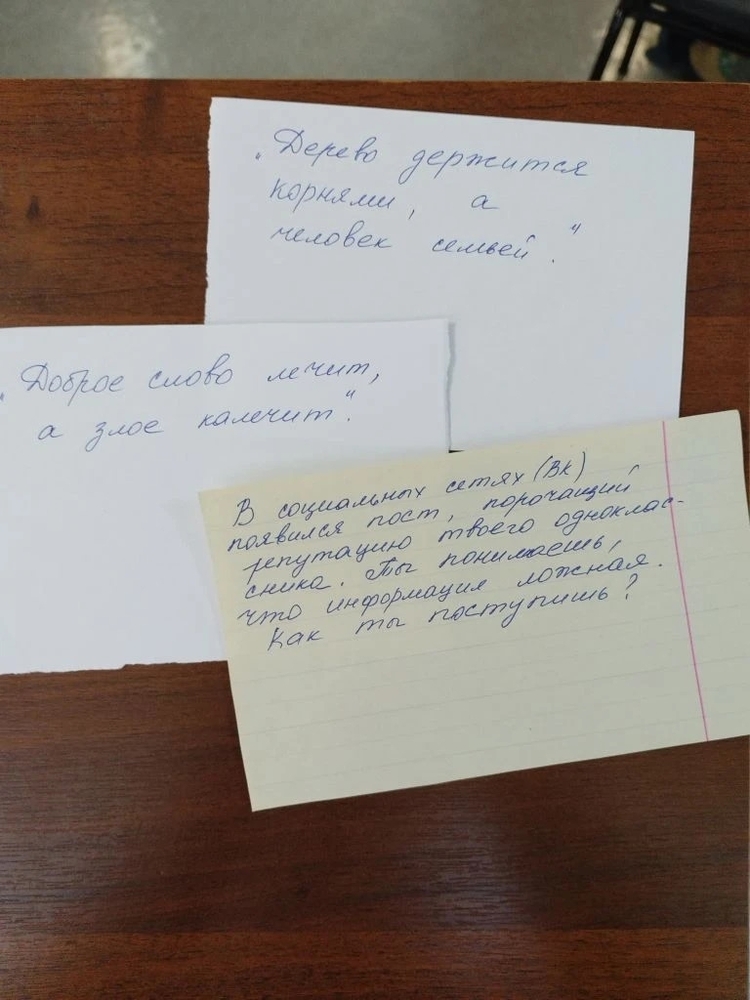 „Дерево держится
корнями, а
человек семьей."
„Доброе слово лечит,
а злое калечит".
В социальных сетях (Вк)
появился пост, порочащий
репутацию твоего одноклас-
сника. Ты понимаешь,
что информация ложная.
Как ты поступишь?